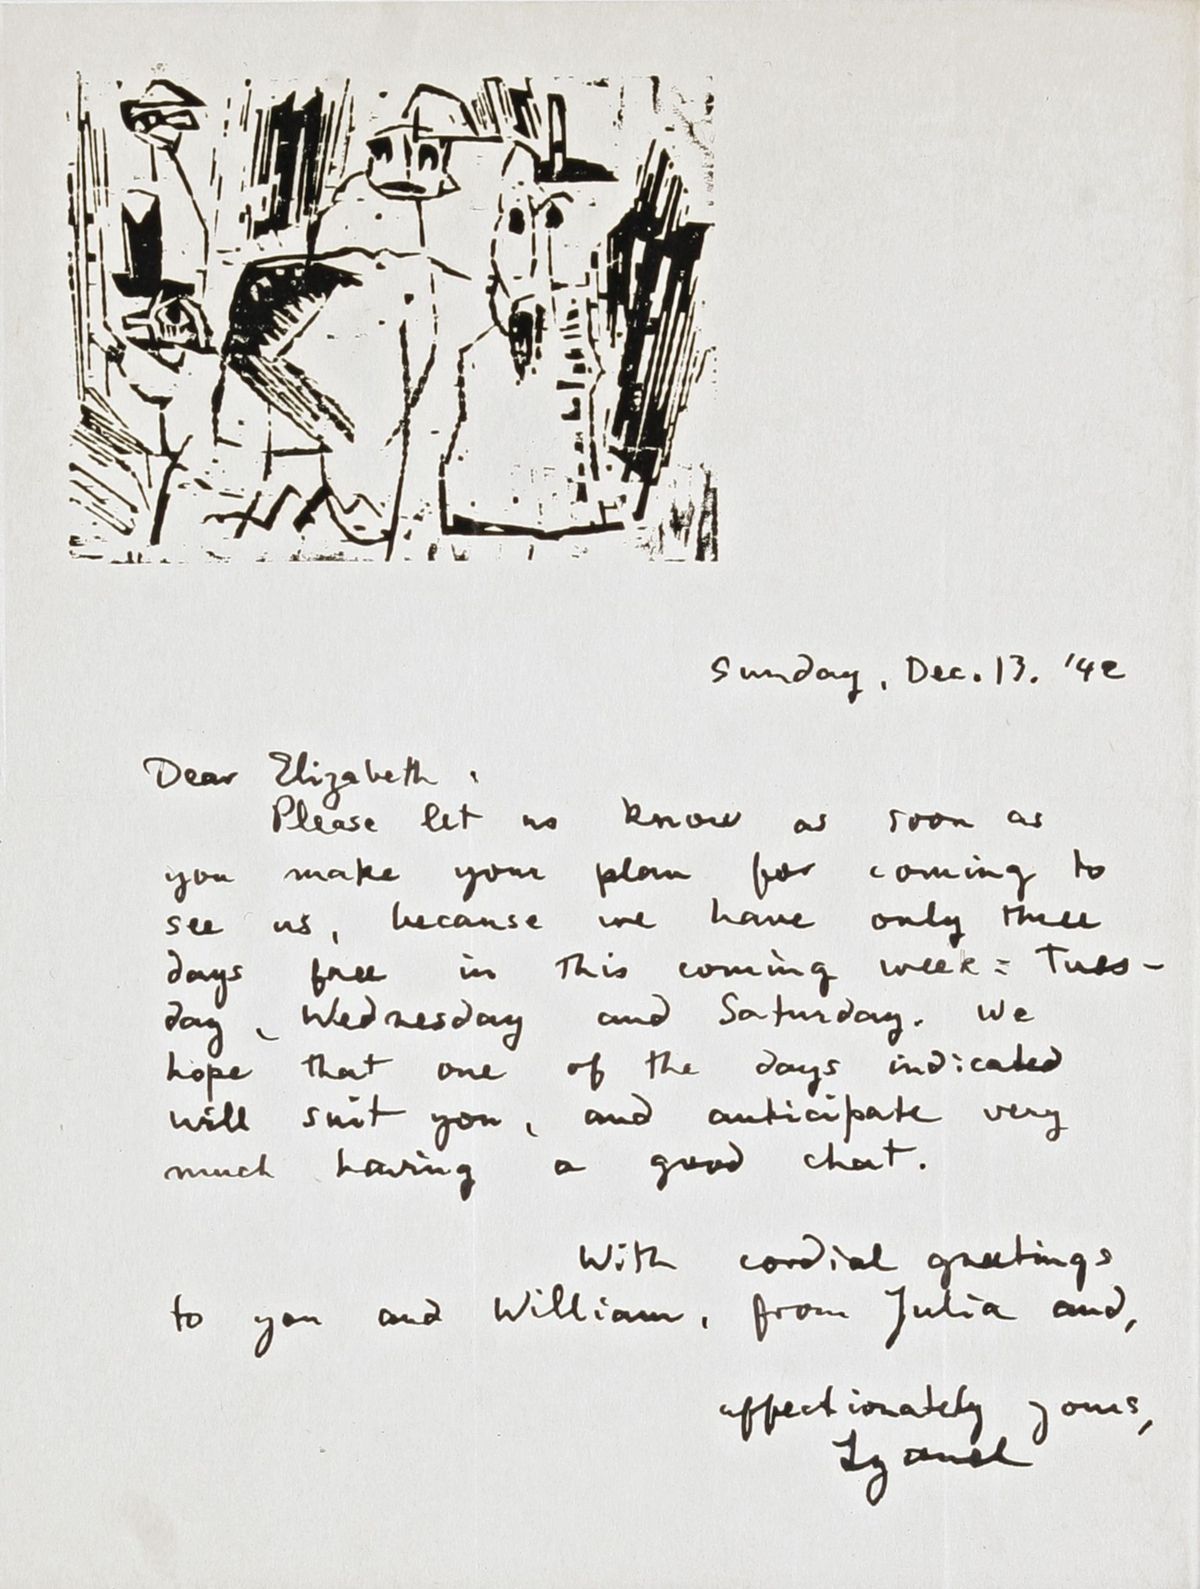 Sunday, Dec. 13. '42
Dear Elizabeth,
Please let us know as soon as
you make your plan for coming to
see us, because we have only three
days free in this coming week: Tues-
day, Wednesday and Saturday. We
hope that one of the days indicated
will suit you, and anticipate very
much having a good chat.
With cordial greetings
to you and William, from Julia and,
affectionately yours,